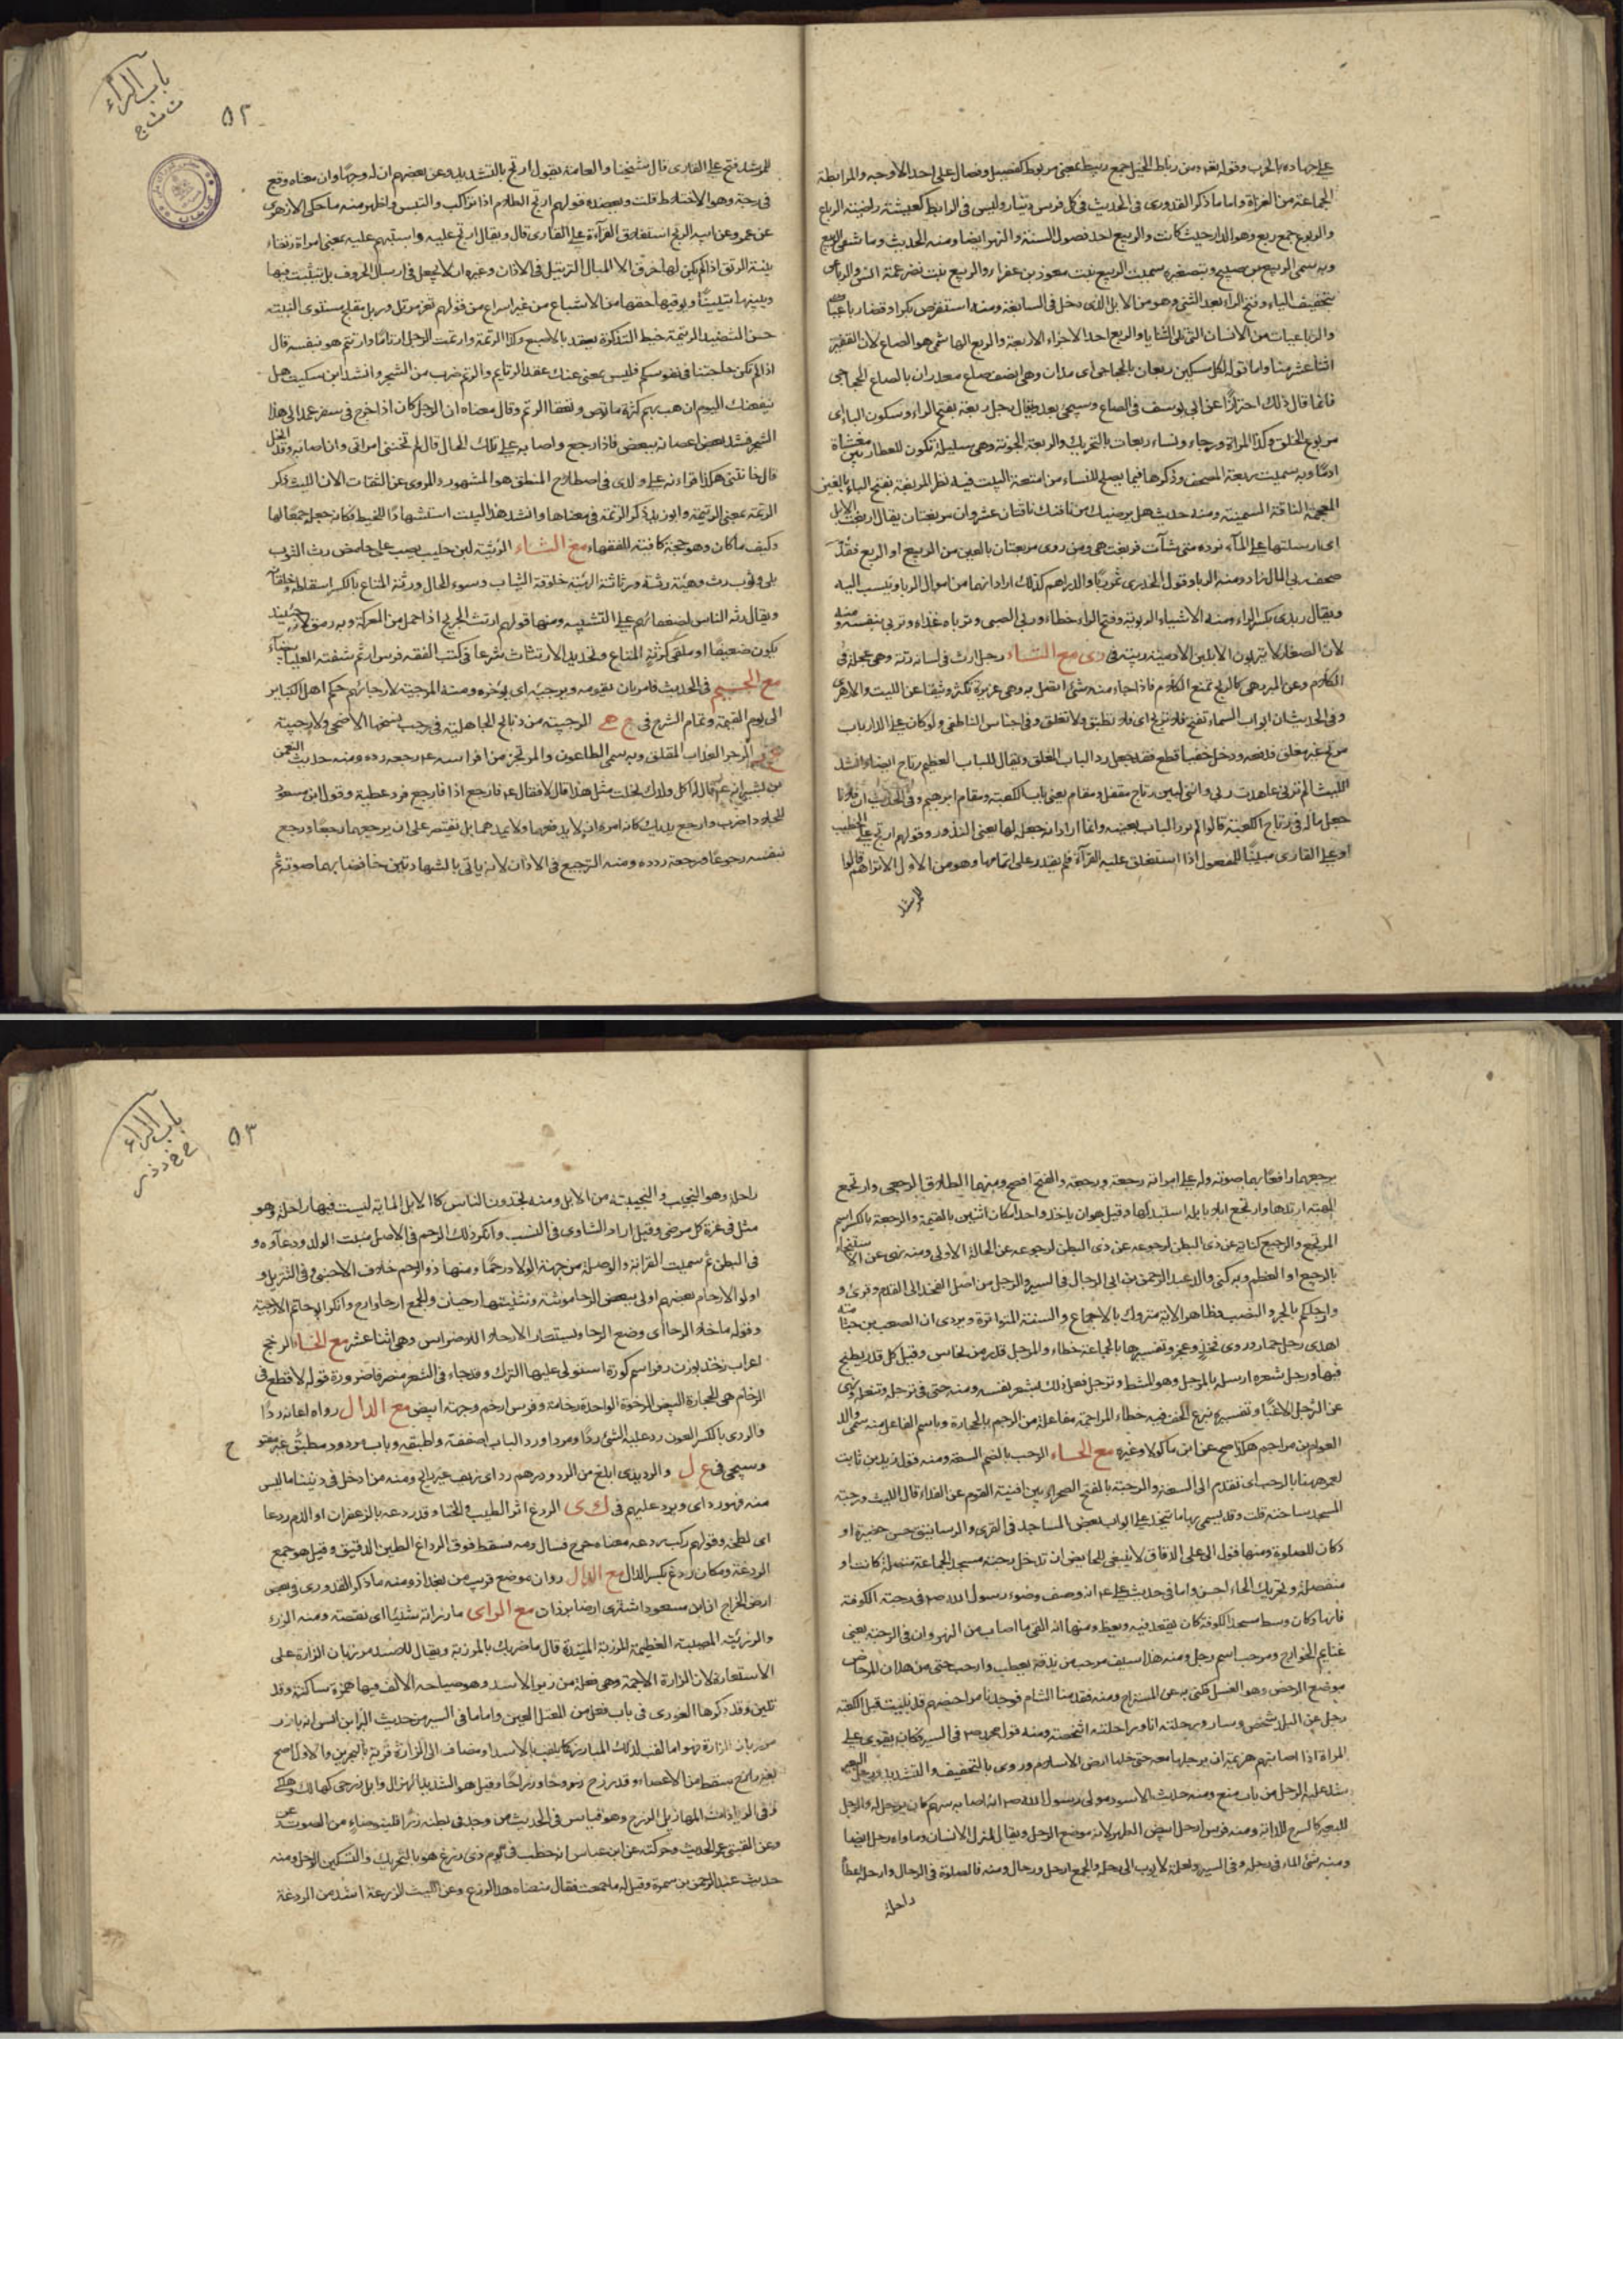 على جهاده بالحرب وقوله تعه ومن رباط الخيل جمع ربيط بمعنى مربوط كفصيل وفصال على احد الاوجه والمرابطة
الجماعة من الغزاة واما ما ذكر القدورى فى الحديث فى كل فرس دينار وليس فى الرابط كعيشة راضية الرباع
والربوع جمع ربع وهو الدار حيث كانت والربيع احد فصول السنة والنهر ايضا ومنه الحديث وما سقى الربيع
وبه سمى الربيع بن صبيح وبتصغيره سميت الربيع بنت معوذ بن عفراء والربيع بنت نضر عمة انس والرباعى
بتخفيف الياء وفتح الراء بعد الثنى وهو من الابل الذى دخل فى السابعة ومنه استقرض بكرا وقضاه رباعيا
والرباعيات من الاسنان التى تلى الثنايا والربع احد الاجزاء الاربعة والربع الهاشمى هو الصاع لان القفيز
اثنا عشر منا واما قوله لكل مسكين ربعان بالحجاجى اى مدان وهما نصف صاع مقدران بالصاع الحجاجى
فانما قال ذلك احترازا عن ابى يوسف فى الصاع وسيجئ بعد ويقال رجل ربعة بفتح الراء وسكون الباء اى
مربوع الخلق وكذا المراة ورجاء ونساء ربعات بالتحريك والربعة الجونة وهى سليلة تكون للعطارين مغشاة
ادما وبه سميت ربعة المصحف وذكرها فيما يصلح للنساء من امتعة البيت فيه نظر المربغة بفتح الباء بالغين
المعجمة الناقة السمينة ومنه حديث هل يرضيك من ناقتك ناقتان عشروان مربغتان يقال اربغت الابل
اى ارسلتها على الماء ترده متى شآت فربغت هى ومن روى مربعتان بالعين من الربيع او الربع فقد
صحف ربى المال زاد ومنه الربا وقول الخدرى تمر ربا والدراهم كذلك اراد انهما من اموال الربا وينسب اليه
ويقال ربوى بكسر الراء ومنه الاشياء الربوية وفتح الراء خطاء وربى الصبى وترباه غذاه وتربى بنفسه ومنه
لان الصغار لا يتربون الا بلبن الادمية ربية فى دى مع التاء رجل ارت فى لسانه رتة وهى عجلة فى
الكلام وعن المبرد هى كالريح تمنع الكلام فاذا جاء منه شئ اتصل به وهى غريزة تكثر وثيقا عن الليث والازهرى
وفى الحديث ان ابواب السماء تفتح فلا ترتج اى فلا تطبق ولا تغلق وفى اجناس الناطفى ولو كان على الدار باب
مرتج غير مغلق فدفعه ودخل خفيا قطع فقد جعل رد الباب الغلق ويقال للباب العظيم رتاج ايضا وانشد
الليث الم ترنى عاهدت ربى واننى لبين رتاج مقفل ومقام يعنى باب الكعبة ومقام ابرهيم وفى الحديث ان فلانا
جعل ماله فى رتاج الكعبة قالوا لم يرد الباب بعينه وانما اراد انه جعله لها يعنى النذور وقولهم ارتج على الخطيب
او على القارى مبنيا للمفعول اذا استغلق عليه القرآة فلم يقدر على اتمامها وهو من الاول الا تراهم قالوا
للمرشد
باب الراء
ت ث ج
٥٢
للمرشد فتح على القارى قال شيخنا والعامة يقول ارتج بالتشديد وعن بعضهم ان له وجها وان معناه وقع
فى رجة وهو الاختلاط قلت ويعضده قولهم ارتج الظلام اذا تراكب والتبس واظهر منه ما حكى الازهرى
عن عمرو عن ابيه الرتج استغلاق القرآءة على القارى قال ويقال ارتج عليه واستبهم عليه بمعنى امراة رتقاء
بينة الرتق اذا لم يكن لها خرق الا المبال الترتيل فى الاذان وغيره ان لا يعجل فى ارسال الحروف بل يتثبت فيها
ويبينها تبيينا ويوفيها حقها من الاشباع من غير اسراع من قولهم ثغر مرتل ورتل مفلج مستوى النبتة
حسن التنضيد الرتيمة خيط التذكرة يعقد بالاصبع وكذا الرتمة وارتمت الرجل ارتاما وارتتم هو بنفسه قال
اذا لم تكن حاجتنا فى نفوسكم فليس بمغن عنك عقد الرتايم والرتم ضرب من الشجر وانشد ابن سكيت هل
ينفعنك اليوم ان همت بهم كثرة ما توصى وتعقاد الرتم وقال معناه ان الرجل كان اذا خرج فى سفر عمد الى هذا
الشجر فشد بعض اغصانه ببعض فاذا رجع واصابه على تلك الحال قال لم تخننى امراتى وان اصابه وقد انحل
قال خانتنى هكذا قراءته على والدى فى اصطلاح المنطق هو المشهور والمروى عن الثقات الا ان الليث ذكر
الرتمة بمعنى الرتيمة وابو زيد ذكر الرتمة فى معناها وانشد هذا البيت استشهادا للخيط فكانه جعله جمعا لها
وكيف ما كان وهو حجة كافية للفقهاء مع الثاء الرثيثة لبن حليب يصب على حامض رث الثوب
بلى وثوب رث وهيئة رثة ورثاثة الهيئة خلوقة الثياب وسوء الحال ورثة المتاع بالكسر اسقاطه وخلقانه
ويقال رثة الناس لضعفائهم على التشبيه ومنها قولهم ارتث الجريح اذا حمل من المعركة وبه رمق لانه حينئذ
يكون ضعيفا او ملقى كرثة المتاع وتحديد الارتثاث شرعا فى كتب الفقه فرس ارثم شفته العليا بيضاء
مع الجيم فى الحديث فامر بان يقومه ويرجيه اى يؤخره ومنه المرجية لارجائهم حكم اهل الكباير
الى يوم القيمة وتمام الشرح فى ج هـ الرجبية من ذبايح الجاهلية فى رجب نسخها الاضحى ولا رجبية
الرجز العذاب المقلق وبه سمى الطاعون والمرتجز من افراسه عم رجعه رده ومنه حديث النعمن
بن بشير انه عم قال له اكل ولدك نحلت مثل هذا قال لا فقال عم فارجع اذا فارجع فرد عطيته وقول ابن مسعود
للجلاد اضرب وارجع يديك كانه امره ان لا يرفعهما ولا يمدهما بل يقتصر على ان يرجعهما رجعا ورجع
بنفسه رجوعا ومرجعه ردده ومنه الترجيع فى الاذان لانه ياتى بالشهادتين خافضا بهما صوته ثم
يرجعهما رافعا بهما صوته وله على امراته رجعة ورجعة والفتح افصح ومنها الطلاق الرجعى وارتجع
الهبة ارتدها وارتجع ابلا بابله استبدلها وقيل هو ان ياخذ واحدا مكان اثنين بالقيمة والرجعة بالكسر اسم
المرتجع والرجيع كناية عن ذى البطن لرجوعه عن الحالة الاولى ومنه نهى عن الاستنجاء
بالرجيع او العظم وبه كنى والد عبد الرحمن بن ابى الرجال فى السير والرجل من اصل الفخذ الى القدم وقرئ و
وارجلكم بالجر والنصب فظاهر الاية متروك بالاجماع والسنة المتواترة ويروى ان الصعب بن جثامة
اهدى رجل حمار وروى فخذ وعجز وتفسيرها بالجماعة خطاء والمرجل قدر من نحاس وقيل كل قدر يطبخ
فيها ورجل شعره ارسله بالمرجل وهو المشط وترجل فعل ذلك بشعر نفسه ومنه حتى فى ترجله وتنعله ونهى
عن الترجل الا غبا وتفسيره بنزع الخف فيه خطاء المراجمة مفاعلة من الرجم بالحجارة وباسم الفاعل منه سمى والد
العوام بن مراجم هكذا صح عن ابن ماكولا وغيره مع الحاء الرحب بالضم السعة ومنه قول زيد بن ثابت
لعمر ههنا بالرحب اى تقدم الى السعة والرحبة بالفتح الصحراء بين افنية القوم عن الفراء قال الليث ورحبة
المسجد ساحته قلت وقد يسمى بها ما يتخذ على ابواب بعض المساجد فى القرى والرساتيق من حضيرة او
دكان للصلوة ومنها قول ابى على الدقاق لا ينبغى للحايض ان تدخل رحبة مسجد الجماعة متصلة كانت او
منفصلة وتحريك الحاء احسن واما فى حديث على عم انه وصف وضوء رسول الله صم فى رحبة الكوفة
فانها دكان وسط مسجد الكوفة كان يقعد فيه ويعظ ومنها انه القى ما اصاب من النهروان فى الرحبة يعنى
غنايم الخوارج ومرحب اسم رجل ومنه هذا سيف مرحب من يذقه يعطب وارحب حى من همدان المرحاض
موضع الرحض وهو الغسل فكنى به عن المستراح ومنه فقدمنا الشام فوجدنا مراحيضهم قد بنيت قبل الكعبة
رحل عن البلد شخص وسار ورحلته انا وراحلته اشخصته ومنه قول محمد رح فى السير فكان يقوى على
المراة اذا اصابتهم هزيمة ان يرحلها معه حتى يدخلها ارض الاسلام وروى بالتخفيف والتشديد ورحل البعير
شد عليه الرحل من باب منع ومنه حديث الاسود مولى رسول الله صم انه اصابه سهم كان يرحل له والرحل
للبعير كالسرج للدابة ومنه فرس ارحل ابيض الظهر لانه موضع الرحل ويقال لمنزل الانسان وماواه رحل ايضا
ومنه نسى الماء فى رحله وفى السير ولعله لا يؤب الى رحله والجمع ارحل ورحال ومنه فالصلوة فى الرحال وارحله اعطاه
راحلة
باب الراء
ح خ د ذ ز
٥٣
راحلة وهو النجيب والنجيبة من الابل ومنه تجدون الناس كالابل الماية ليست فيها راحلة وهو
مثل فى عزة كل مرضى وقيل اراد التساوى فى النسب وانكر ذلك الرحم فى الاصل منبت الولد ودعآوه و
فى البطن ثم سميت القرابة والوصلة من جهة الولاد رحما ومنها ذو الرحم خلاف الاجنبى وفى التنزيل و
اولوا الارحام بعضهم اولى ببعض الرحا مونثة وتثنيتها رحيان والجمع ارحاء وارح وانكر ابو حاتم الارحية
وقوله ما خلا الرحا اى وضع الرحا ويستعار الارحاء للاضراس وهى اثنا عشر مع الخاء الرخج
اعراب رخذ بوزن زفر اسم كورة استولى عليها الترك وقد جاء فى الشعر منصرفا ضرورة قوله لا قطع فى
الرخام هى الحجارة البيض الرخوة الواحدة رخامة وفرس ارخم وجهه ابيض مع الدال رداه اعانه ردا
والردئ بالكسر العون رد عليه الشئ ردا ومردا ورد الباب اصفقه واطبقه وباب مردود مطبق غير مفتوح
وسيجئ فى ع ل والرديدى ابلغ من الرد ودرهم رد اى زيف غير رايج ومنه من ادخل فى ديننا ما ليس
منه فهو رد اى ويرد عليهم فى ك ى الردع اثر الطيب والحناء وقد ردعه بالزعفران او الدم ردعا
اى لطخه وقولهم ركب ردعه معناه جرح فسال دمه فسقط فوق الرداغ الطين الرقيق وقيل هو جمع
الردغة ومكان ردغ بكسر الدال مع الذال روان موضع قريب من بغداذ ومنه ما ذكر القدورى فى بعض
ارض الخراج ان ابن مسعود اشترى ارضا برذان مع الزاى ما رزاته شيئا اى نقصته ومنه الرزء
والرزئية المصيبة العظيمة المرزبة الميتدة قال ضربك بالمرزبة ويقال للاسد مرزبان الزارة على
الاستعارة لان الزارة الاجمة وهى فعلة من زئير الاسد وهو صياحه الالف فيها همزة ساكنة وقد
تلين وقد ذكرها الغورى فى باب فعل من المعتل العين واما ما فى السير من حديث البراء بن انس انه بارز
مرزبان الزارة فهو اما لقب لذلك المبارز كما يلقب بالاسد او مضاف الى الزارة قرية بالبحرين والاول اصح
بعير رازح سقط من الاعياء وقد رزح رزوحا ورزاحا وقيل هو الشديد الهزال وابل رزحى كهالك وهلكى
وعن القتبى عن الحديث وحركته عن ابن عباس انه خطب فى يوم ذى رزغ هو بالتحريك والتسكين الوحل ومنه
حديث عبد الرحمن بن سمرة وقيل له ما جمعت فقال منعنا هذا الرزغ وعن الليث الرزغة اشد من الردغة